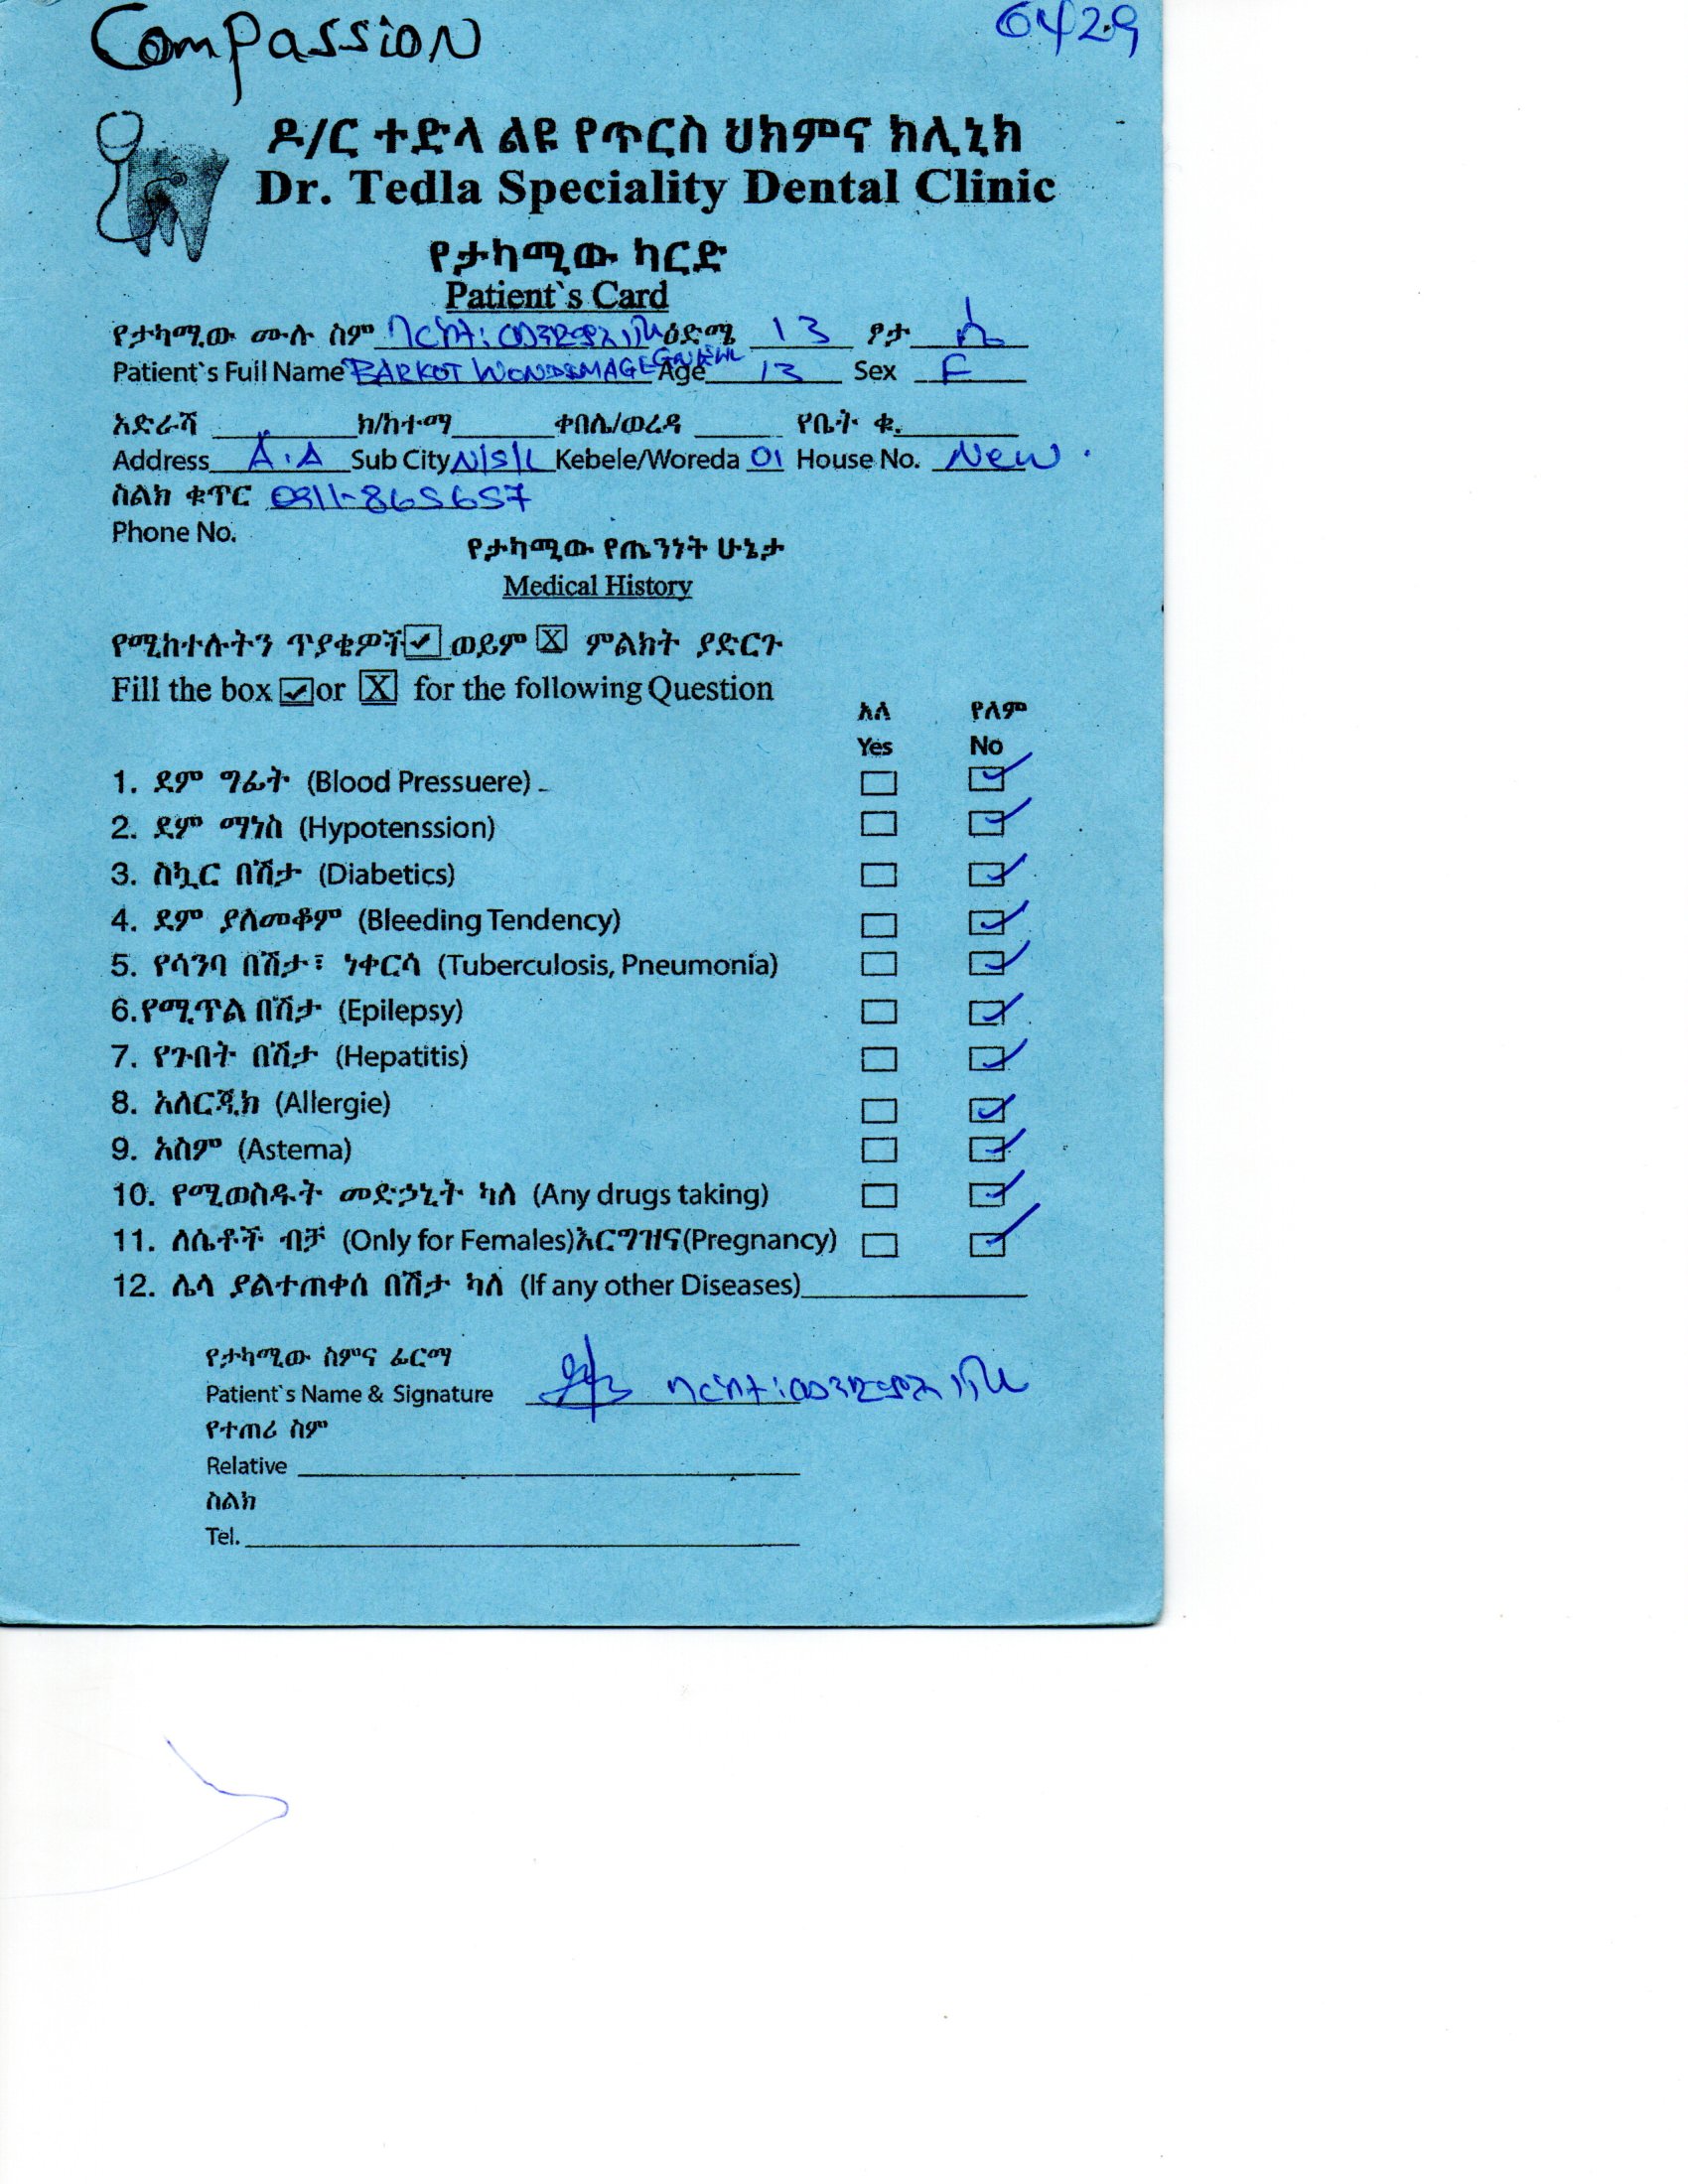 Compassion 6429
ዶ/ር ተድላ ልዩ የጥርስ ህክምና ክሊኒክ
Dr. Tedla Speciality Dental Clinic
የታካሚው ካርድ
Patient`s Card
የታካሚው ሙሉ ስም በርኮት: ወንድምአገኘሁ ዕድሜ 13 ፆታ ሴ
Patient`s Full Name BARKOT WONDIMAGEGNEHU Age 13 Sex F
አድራሻ ክ/ከተማ ቀበሌ/ወረዳ የቤት ቁ.
Address A.A Sub City N/S/L Kebele/Woreda 01 House No. New.
ስልክ ቁጥር 0911-865657
Phone No.
የታካሚው የጤንነት ሁኔታ
Medical History
የሚከተሉትን ጥያቄዎች ✓ ወይም X ምልክት ያድርጉ
Fill the box ✓ or X for the following Question
አለ የለም
Yes No
1. ደም ግፊት (Blood Pressuere)
2. ደም ማነስ (Hypotenssion)
3. ስኳር በሽታ (Diabetics)
4. ደም ያለመቆም (Bleeding Tendency)
5. የሳንባ በሽታ፣ ነቀርሳ (Tuberculosis, Pneumonia)
6.የሚጥል በሽታ (Epilepsy)
7. የጉበት በሽታ (Hepatitis)
8. አለርጂክ (Allergie)
9. አስም (Astema)
10. የሚወስዱት መድኃኒት ካለ (Any drugs taking)
11. ለሴቶች ብቻ (Only for Females)እርግዝና(Pregnancy)
12. ሌላ ያልተጠቀሰ በሽታ ካለ (If any other Diseases)
የታካሚው ስምና ፊርማ
Patient`s Name & Signature በርኮት:ወንድምአገኘሁ
የተጠሪ ስም
Relative
ስልክ
Tel.